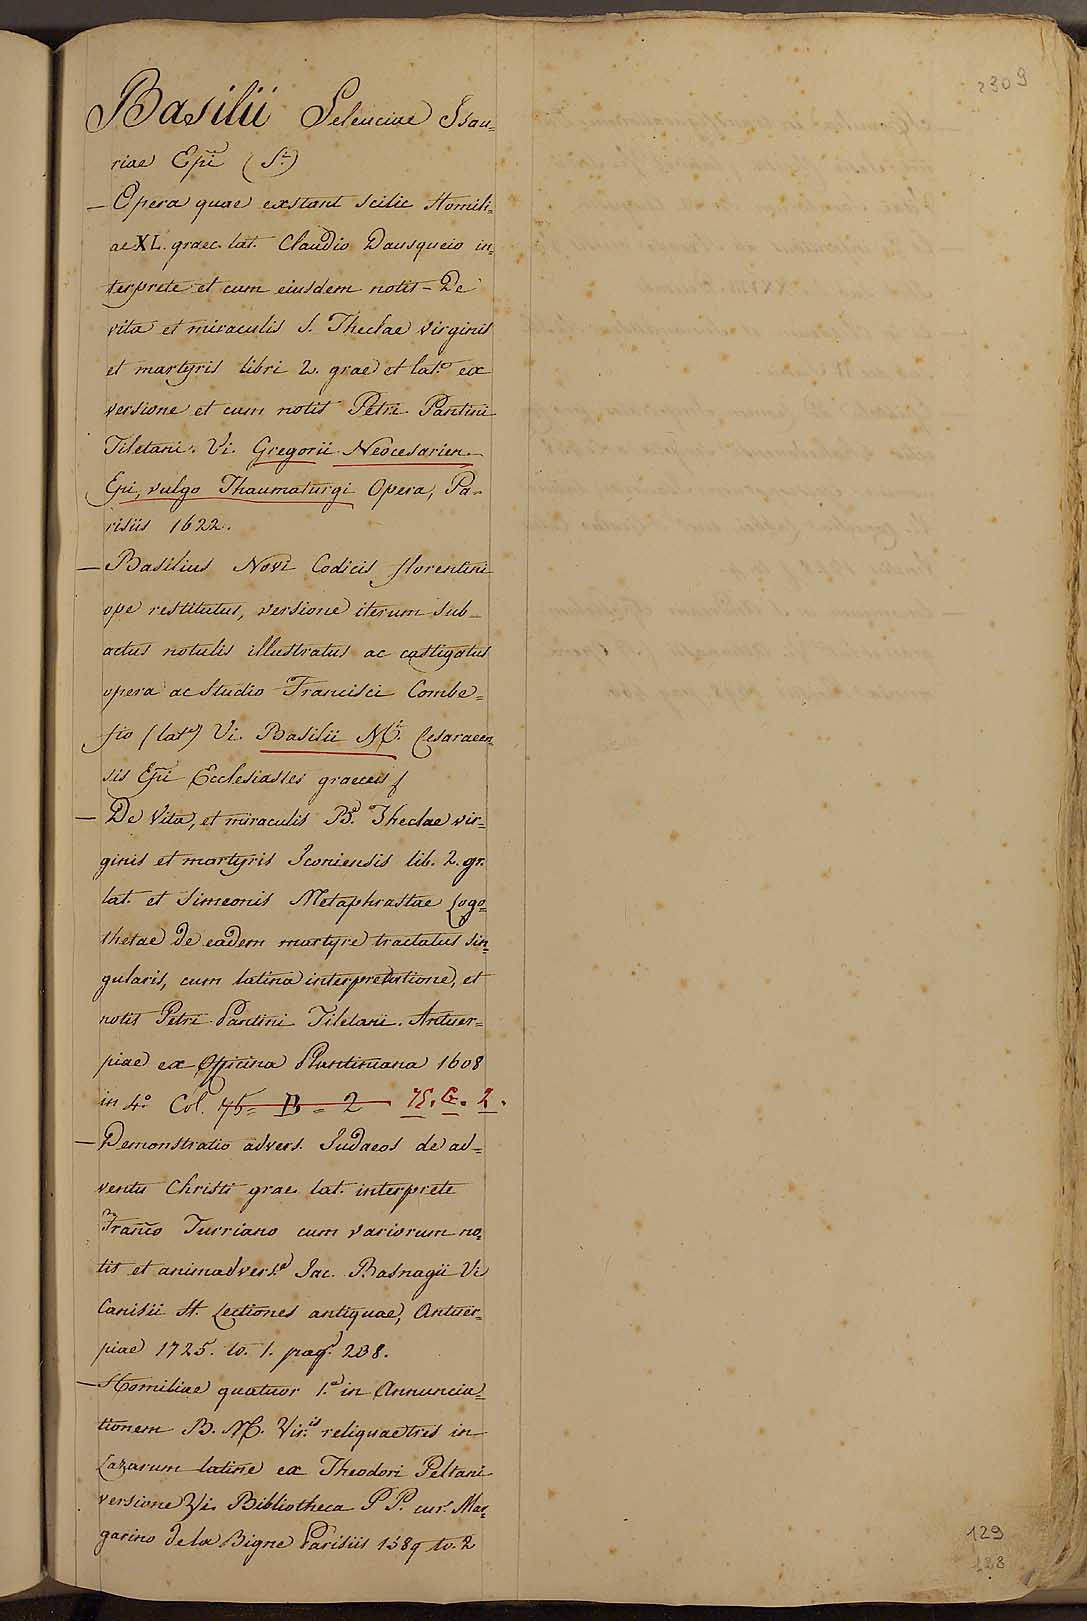 2309
Basilii Seleuciae Isau=
riae Epi (St.)
— Opera quae exstant scilic Homili=
ae XL. graec. lat. Claudio Dausqueio in=
terprete et cum eiusdem notis – De
vita et miraculis S. Theclae virginis
et martyris libri 2. graec et lat.e ex
versione et cum notis Petri Pantini
Tiletani. Vi. Gregorii Neocesarien.
Epi, vulgo Thaumaturgi Opera, Pa=
risiis 1622.
— Basilius Novi Codicis florentini
ope restitutus, versione iterum sub=
actus notulis illustratus ac castigatus
opera ac studio Francisci Combe=
fio (lat.e) Vi. Basilii M. Cesaraeen=
sis Epi Ecclesiastes graecus
— De Vita, et miraculis B. Theclae vir=
ginis et martyris Iconiensis lib. 2. gr.
lat. et Simeonis Metaphrastae Logo=
thetae de eadem martyre tractatus sin=
gularis, cum latina interpretatione, et
notis Petri Pantini Tiletani. Antuer=
piae ex Officina Plantiniana 1608
in 4.o Col. 75 = B = 2 75. G. 2.
— Demonstratio advers. Judaeos de ad=
ventu Christi grae. lat. interprete
Franco Turriano cum variorum no=
tis et animadvers. Jac. Basnagii Vi
Canisii H. Lectiones antiquae, Antuer=
piae 1725. to. 1. pag. 208.
— Homiliae quatuor 1.a in Annuncia=
tionem B. M. Vir.is reliquae tres in
Lazarum latine ex Theodori Peltani
versione Vi. Bibliotheca P P. cur. Mar=
garino de la Bigne Parisiis 1589 to. 2
129
128